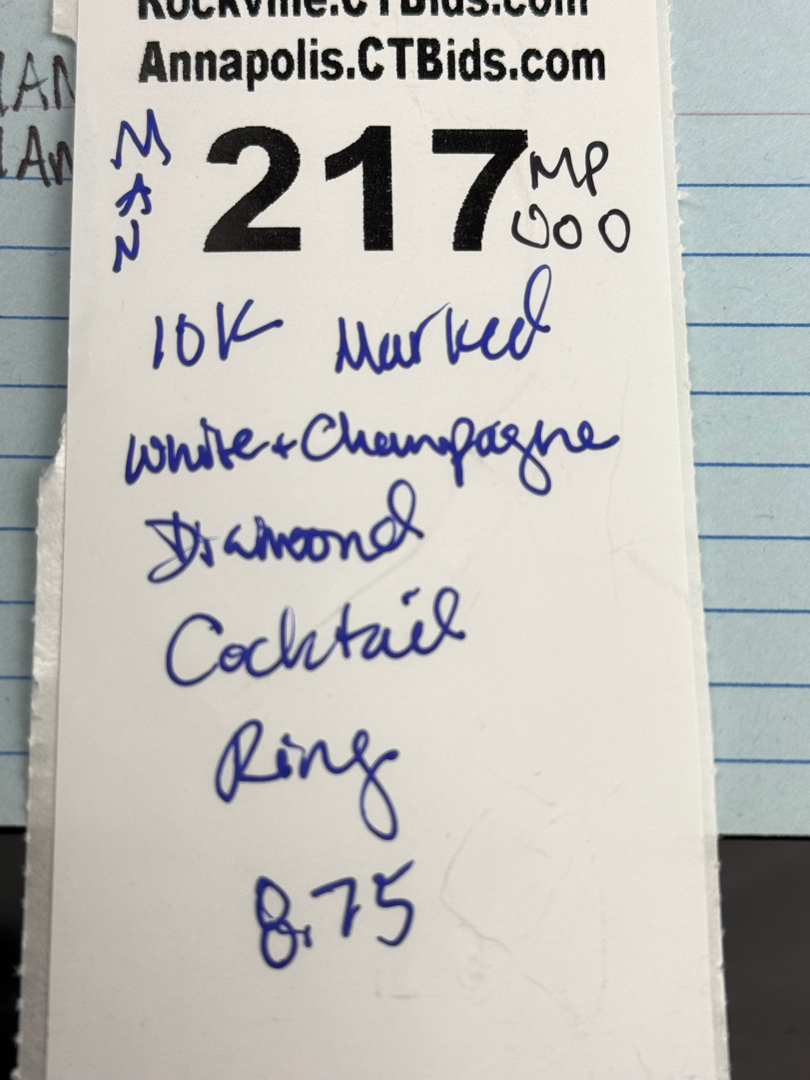 Rockville.CTBids.com
Annapolis.CTBids.com
MAN
217
MP
000
10K Marked
White + Champagne
Diamoond
Cocktail
Ring
8.75